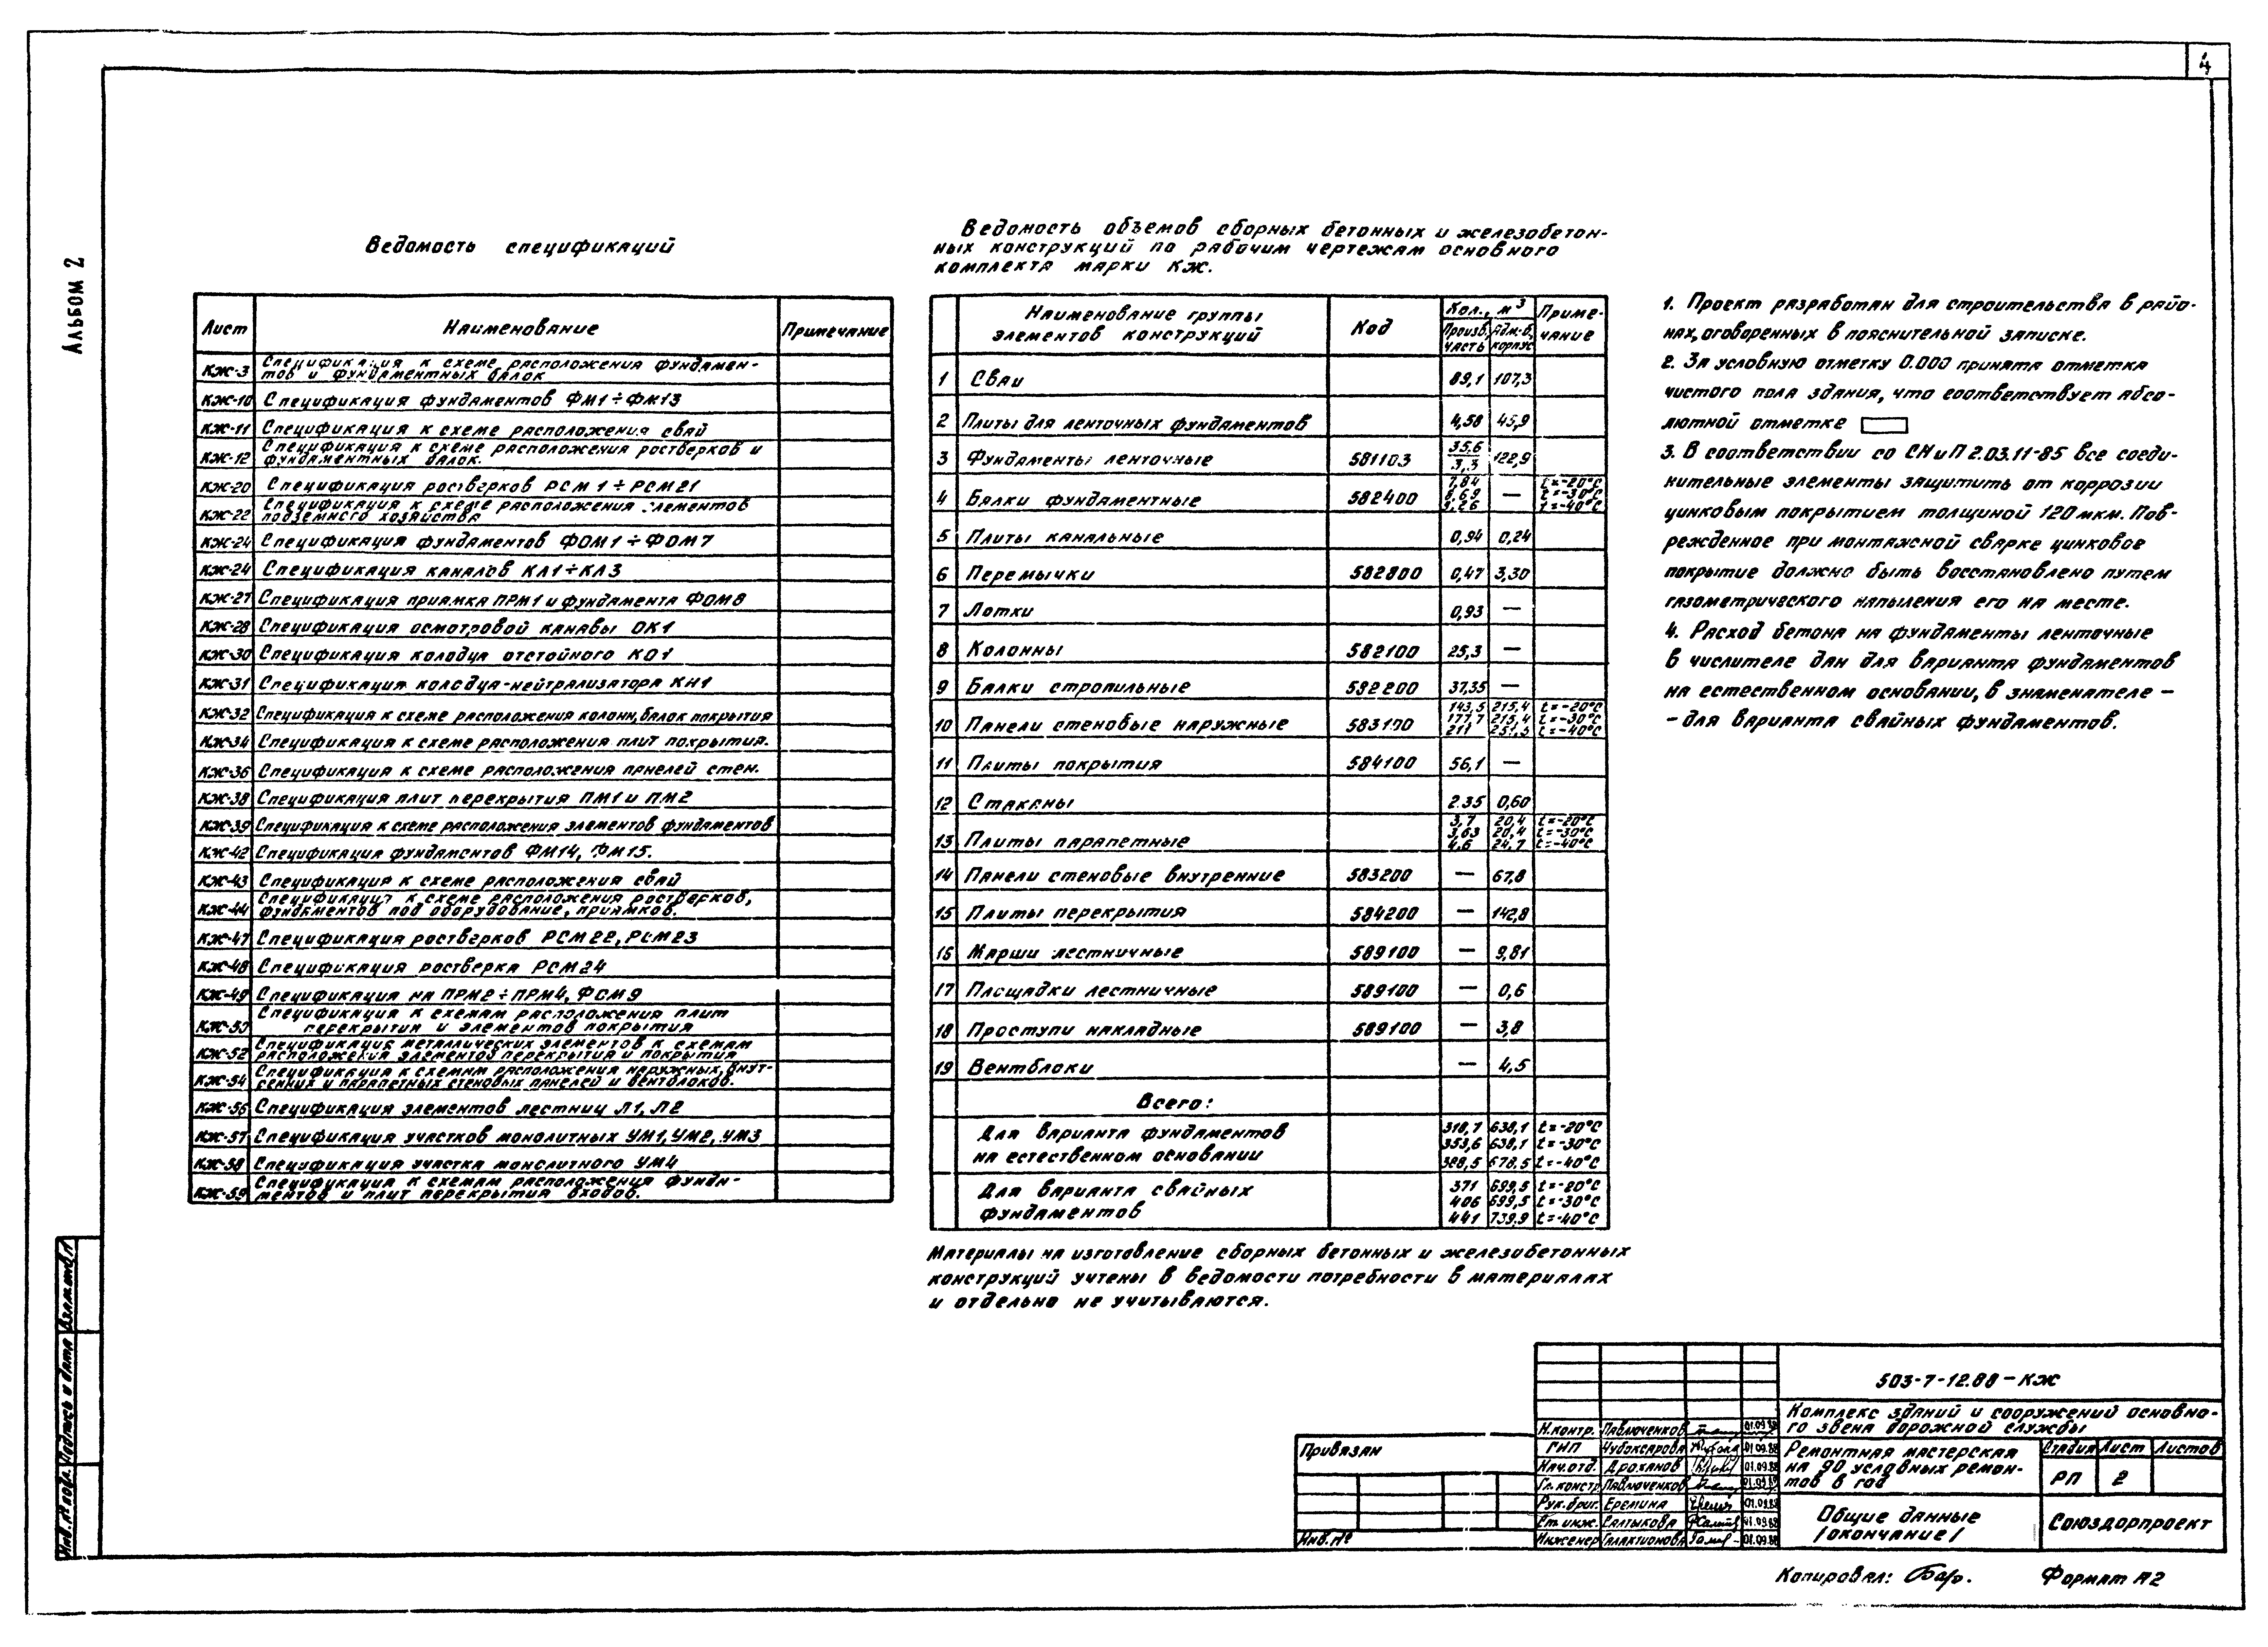 4
Альбом 2
Ведомость спецификаций
Лист Наименование Примечание
КЖ-3 Спецификация к схеме расположения фундамен-
тов и фундаментных балок
КЖ-10 Спецификация фундаментов ФМ1÷ФМ13
КЖ-11 Спецификация к схеме расположения свай
КЖ-12 Спецификация к схеме расположения ростверков и
фундаментных балок.
КЖ-20 Спецификация ростверков РСМ1÷РСМ21
КЖ-22 Спецификация к схеме расположения элементов
подземного хозяйства
КЖ-24 Спецификация фундаментов ФОМ1÷ФОМ7
КЖ-24 Спецификация каналов КЛ1÷КЛ3
КЖ-27 Спецификация приямка ПРМ1 и фундамента ФОМ8
КЖ-28 Спецификация осмотровой канавы ОК1
КЖ-30 Спецификация колодца отстойного КО1
КЖ-31 Спецификация колодца-нейтрализатора КН1
КЖ-32 Спецификация к схеме расположения колонн, балок покрытия
КЖ-34 Спецификация к схеме расположения плит покрытия.
КЖ-36 Спецификация к схеме расположения панелей стен.
КЖ-38 Спецификация плит перекрытия ПМ1 и ПМ2
КЖ-39 Спецификация к схеме расположения элементов фундаментов
КЖ-42 Спецификация фундаментов ФМ14, ФМ15.
КЖ-43 Спецификация к схеме расположения свай
КЖ-44 Спецификация к схеме расположения ростверков,
фундаментов под оборудование, приямков.
КЖ-47 Спецификация ростверков РСМ22, РСМ23
КЖ-48 Спецификация ростверка РСМ24
КЖ-49 Спецификация на ПРМ2÷ПРМ4, ФОМ9
КЖ-50 Спецификация к схемам расположения плит
перекрытия и элементов покрытия
КЖ-52 Спецификация металлических элементов к схемам
расположения элементов перекрытия и покрытия
КЖ-54 Спецификация к схемам расположения наружных, внут-
ренних и парапетных стеновых панелей и вентблоков.
КЖ-56 Спецификация элементов лестниц Л1, Л2
КЖ-57 Спецификация участков монолитных УМ1, УМ2, УМ3
КЖ-58 Спецификация участка монолитного УМ4
КЖ-59 Спецификация к схемам расположения фунда-
ментов и плит перекрытия входов.
Ведомость объемов сборных бетонных и железобетон-
ных конструкций по рабочим чертежам основного
комплекта марки КЖ.
Наименование группы элементов конструкций Код Кол., м³ Приме-
чание
Произв. часть Адм.-б. корпус
1 Сваи 89,1 107,3
2 Плиты для ленточных фундаментов 4,58 45,9
3 Фундаменты ленточные 581103 35,6/3,3 122,9
4 Балки фундаментные 582400 7,84 — t=-20°C
8,69 t=-30°C
9,26 t=-40°C
5 Плиты канальные 0,94 0,24
6 Перемычки 582800 0,47 3,30
7 Лотки 0,93 —
8 Колонны 582100 25,3 —
9 Балки стропильные 582200 37,35 —
10 Панели стеновые наружные 583100 143,5 215,4 t=-20°C
177,7 215,4 t=-30°C
211 251,3 t=-40°C
11 Плиты покрытия 584100 56,1 —
12 Стаканы 2.35 0,60
13 Плиты парапетные 3,7 20,4 t=-20°C
3,63 20,4 t=-30°C
4,6 24,7 t=-40°C
14 Панели стеновые внутренние 583200 — 67,8
15 Плиты перекрытия 584200 — 142,8
16 Марши лестничные 589100 — 9,81
17 Площадки лестничные 589100 — 0,6
18 Проступи накладные 589100 — 3,8
19 Вентблоки — 4,5
Всего:
Для варианта фундаментов 318,7 638,1 t=-20°C
на естественном основании 353,6 638,1 t=-30°C
388,5 678,5 t=-40°C
Для варианта свайных 371 699,5 t=-20°C
фундаментов 406 699,5 t=-30°C
441 739,9 t=-40°C
Материалы на изготовление сборных бетонных и железобетонных
конструкций учтены в ведомости потребности в материалах
и отдельно не учитываются.
1. Проект разработан для строительства в райо-
нах, оговоренных в пояснительной записке.
2. За условную отметку 0.000 принята отметка
чистого пола здания, что соответствует абсо-
лютной отметке
3. В соответствии со СНиП 2.03.11-85 все соеди-
нительные элементы защитить от коррозии
цинковым покрытием толщиной 120 мкм. Пов-
режденное при монтажной сварке цинковое
покрытие должно быть восстановлено путем
газометрического напыления его на месте.
4. Расход бетона на фундаменты ленточные
в числителе дан для варианта фундаментов
на естественном основании, в знаменателе —
- для варианта свайных фундаментов.
Инв. № подл. Подпись и дата Взам. инв. №
Привязан
Инв. №
503-7-12.88-КЖ
Комплекс зданий и сооружений основно-
го звена дорожной службы
Н.контр. Павлюченков 01.09.88
ГИП Чубоксарова 01.09.88
Нач.отд. Дроханов 01.09.88
Гл.констр. Павлюченков 01.09.88
Рук.бриг. Еремина 01.09.88
Ст.инж. Салтыкова 01.09.88
Инженер Галактионова 01.09.88
Ремонтная мастерская
на 90 условных ремон-
тов в год
Стадия Лист Листов
РП 2
Общие данные
/окончание/
Союздорпроект
Копировал: Формат А2